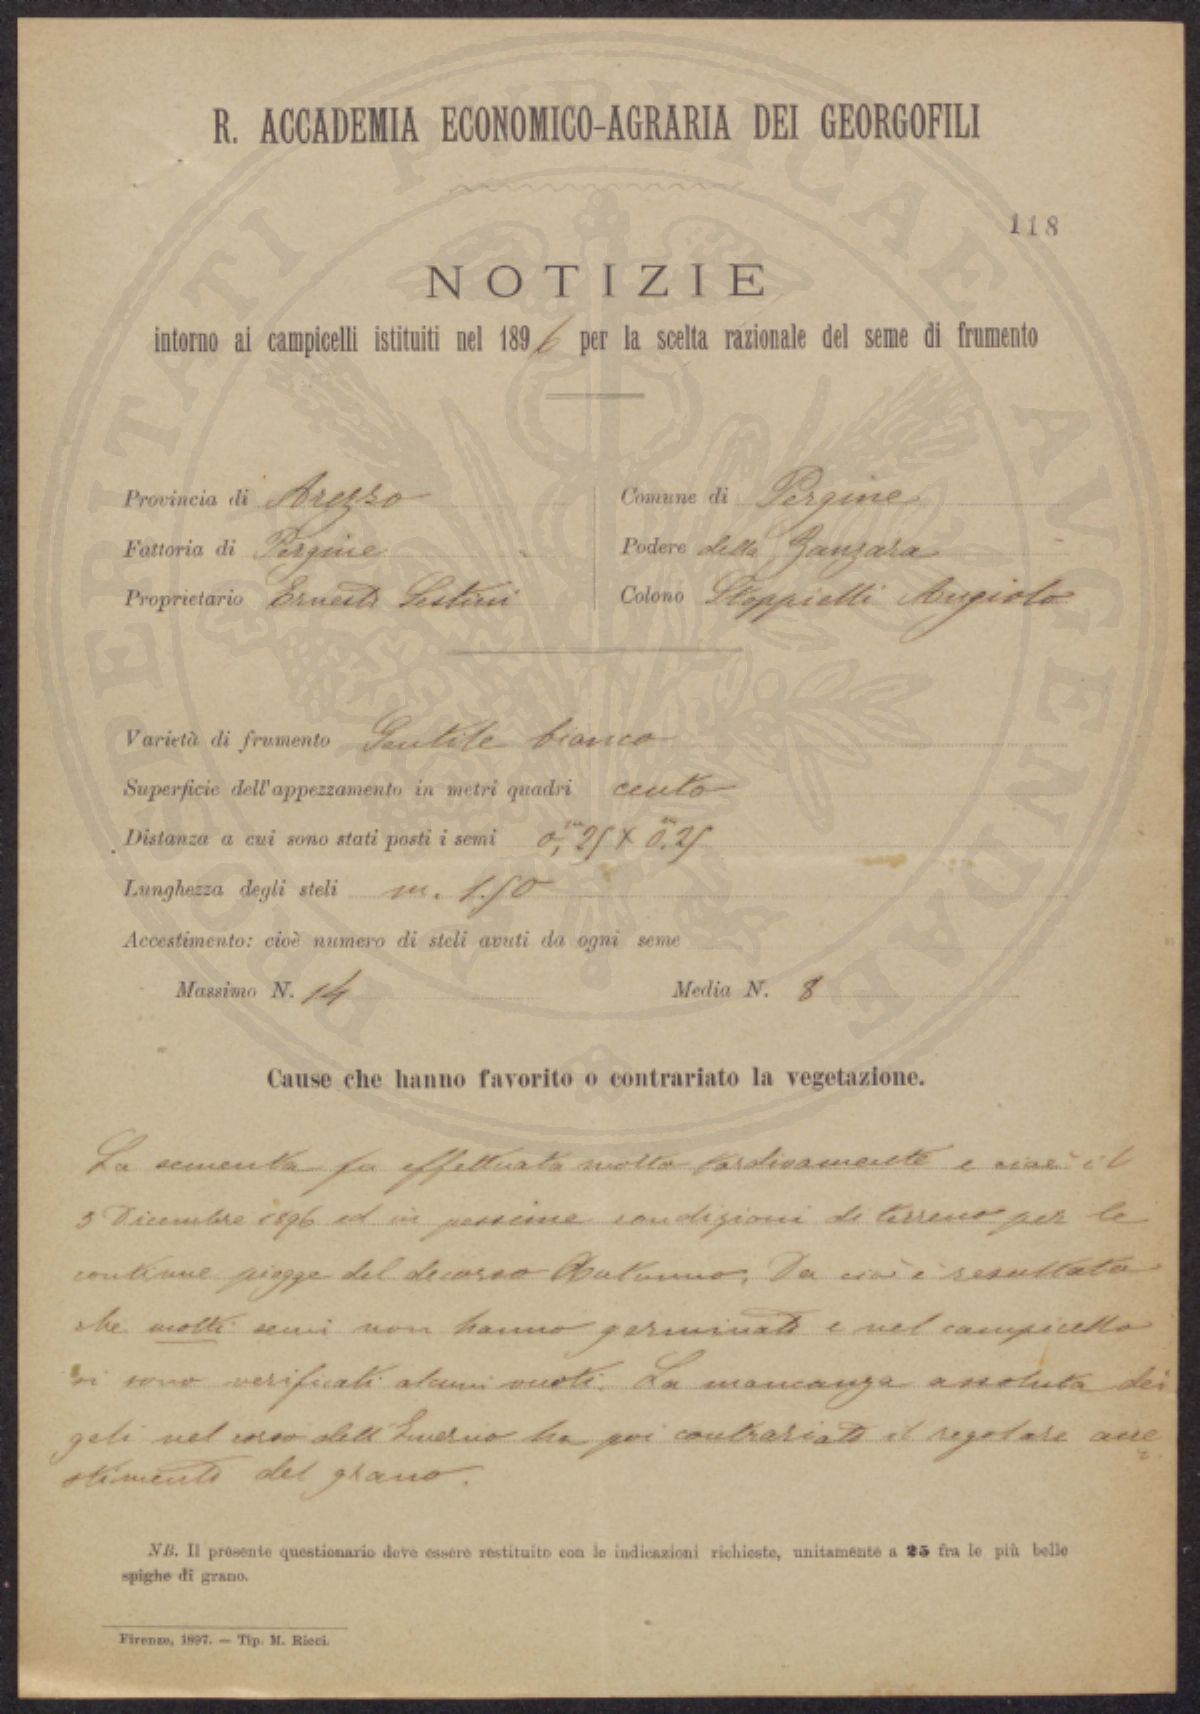 R. ACCADEMIA ECONOMICO-AGRARIA DEI GEORGOFILI
118
NOTIZIE
intorno ai campicelli istituiti nel 1896 per la scelta razionale del seme di frumento
Provincia di Arezzo
Comune di Pergine
Fattoria di Pergine
Podere della Zanzara
Proprietario Ernesto Sestini
Colono Stoppielli Angiolo
Varietà di frumento Gentile bianco
Superficie dell'appezzamento in metri quadri cento
Distanza a cui sono stati posti i semi 0,m25 X 0.m25
Lunghezza degli steli m. 1.50
Accestimento: cioè numero di steli avuti da ogni seme
Massimo N. 14
Media N. 8
Cause che hanno favorito o contrariato la vegetazione.
La sementa fu effettuata molto tardivamente e cioè il
3 Dicembre 1896 ed in pessime condizioni di terreno per le
continue piogge del decorso Autunno. Da ciò è resultato
che molti semi non hanno germinato e nel campicello
si sono verificati alcuni vuoti. La mancanza assoluta dei
geli nel corso dell'Inverno ha poi contrariato il regolare acce
stimento del grano.
NB. Il presente questionario deve essere restituito con le indicazioni richieste, unitamente a 25 fra le più belle
spighe di grano.
Firenze, 1897. — Tip. M. Ricci.
PROSPERITATI PUBLICAE AUGENDAE